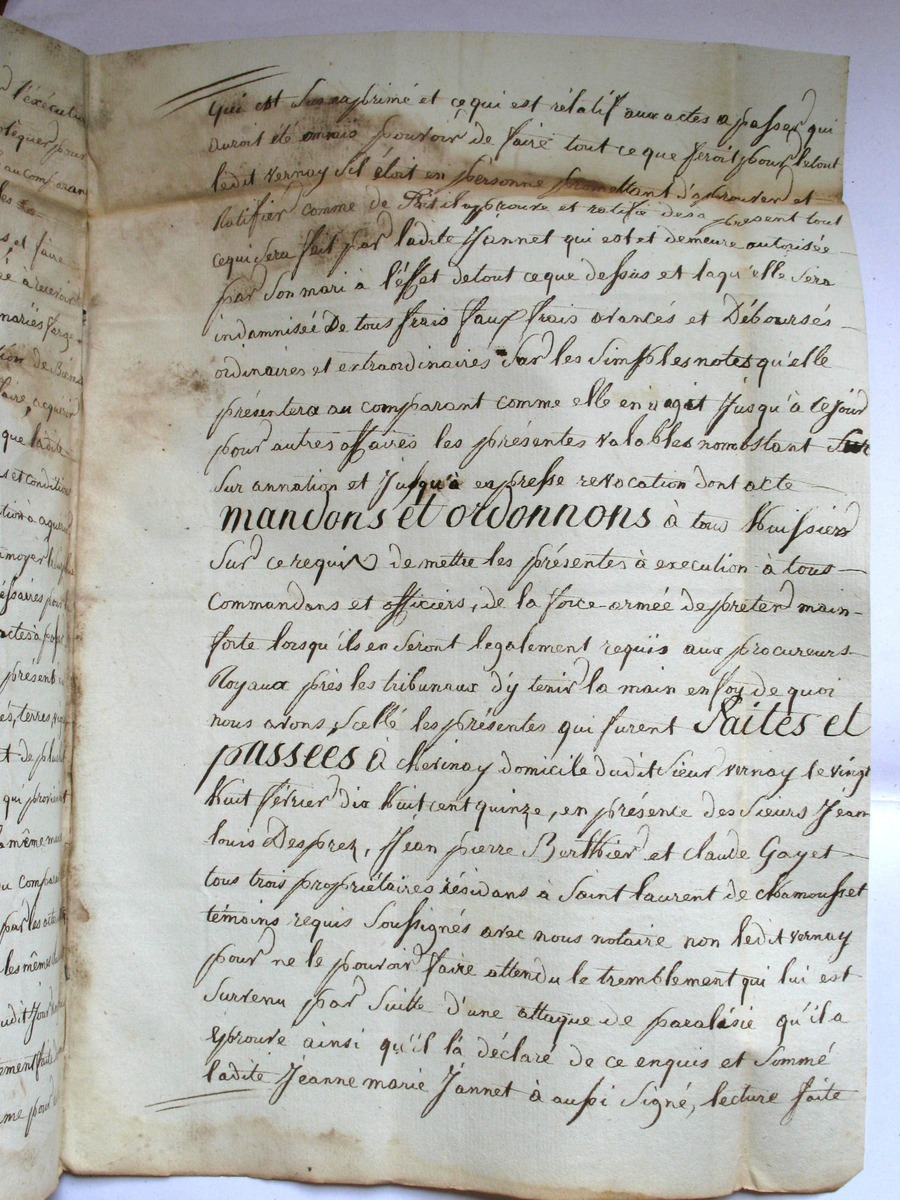 l'éxécution
pour
au comparan
les
s, et faire
ée à recevoir
mariés
tion de Biens
laire, acquérir
que ladite
s et conditions
présent
és, terres,
et de plus
qui provienent
a même
au Compara
par les
les mêmes
udit Jour
me pour
qui est Susexprimé et ce qui est rélatif aux actes a passer, qui
auroit été ommis pouvoir de faire tout ce que feroit pour le tout
ledit vernay S'il étoit en personne promettant d'aprouver et
Ratifier comme de fait il aprouve et ratifie des a présent tout
ce qui Sera fait par ladite Jannet qui est et demeure autorisée
par Son mari à l'éffet de tout ce que dessus et laqu'elle Sera
indamnisée De tous frais faux frais avancés et Déboursés
ordinaires et extraordinaires Sur les Simples notes qu'elle
présentera au comparant comme elle en a agit Jusqu'à ce jour
pour autres affaires les présentes valables nonobstant Sur
Sur annation et Jusqu'à expresse revocation dont acte
mandons et ordonnons à tous huissiers
Sur ce requis de mettre les présentes à execution à tous
Commandans et officiers, de la force armée de preter main-
forte lorsqu'ils en Séront legalement requis aux procureurs
Royaux près les tribunaux d'y tenir la main en foy de quoi
nous avons, scellé les présentes qui furent faites et
passées à chevinay domicile dudit Sieur vernay le vingt
huit février dix huit cent quinze, en présence des Sieurs Jean
louis Desprez, Jean pierre Berthier et claude Gayet
tous trois propriétaires résidans à Saint laurent de chamousset
témoins requis Soussignés avec nous notaire non ledit vernay
pour ne le pouvoir faire attendu le tremblement qui lui est
Survenu par Suitte d'une attaque de paralésie qu'il a
éprouvé ainsi qu'il l'a déclaré de ce enquis et Sommé
ladite Jeanne marie Jannet à aussi Signé, lecture faite